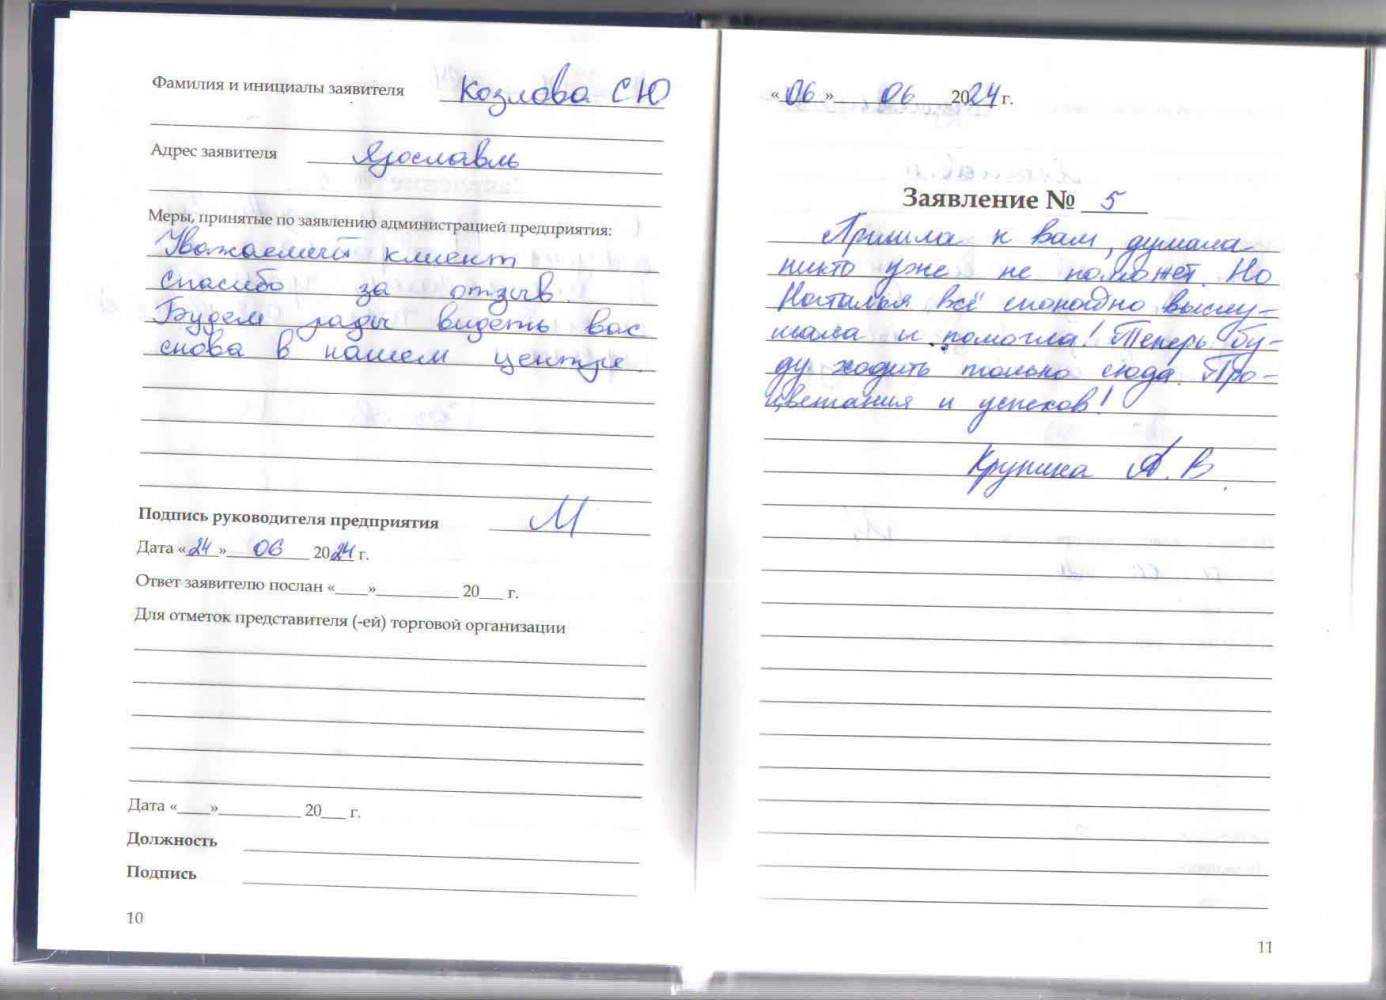 Фамилия и инициалы заявителя Козлова С Ю
Адрес заявителя Ярославль
Меры, принятые по заявлению администрацией предприятия:
Уважаемый клиент
спасибо за отзыв.
Будем рады видеть вас
снова в нашем центре.
Подпись руководителя предприятия
Дата «24» 06 2024 г.
Ответ заявителю послан «____»__________ 20___ г.
Для отметок представителя (-ей) торговой организации
Дата «____»__________ 20___ г.
Должность
Подпись
10
«06» 06 2024 г.
Заявление № 5
Пришла к вам, думала
никто уже не поможет. Но
Наталья всё спокойно выслу-
шала и помогла! Теперь бу-
ду ходить только сюда. Про-
цветания и успехов!
Крупина А. В.
11